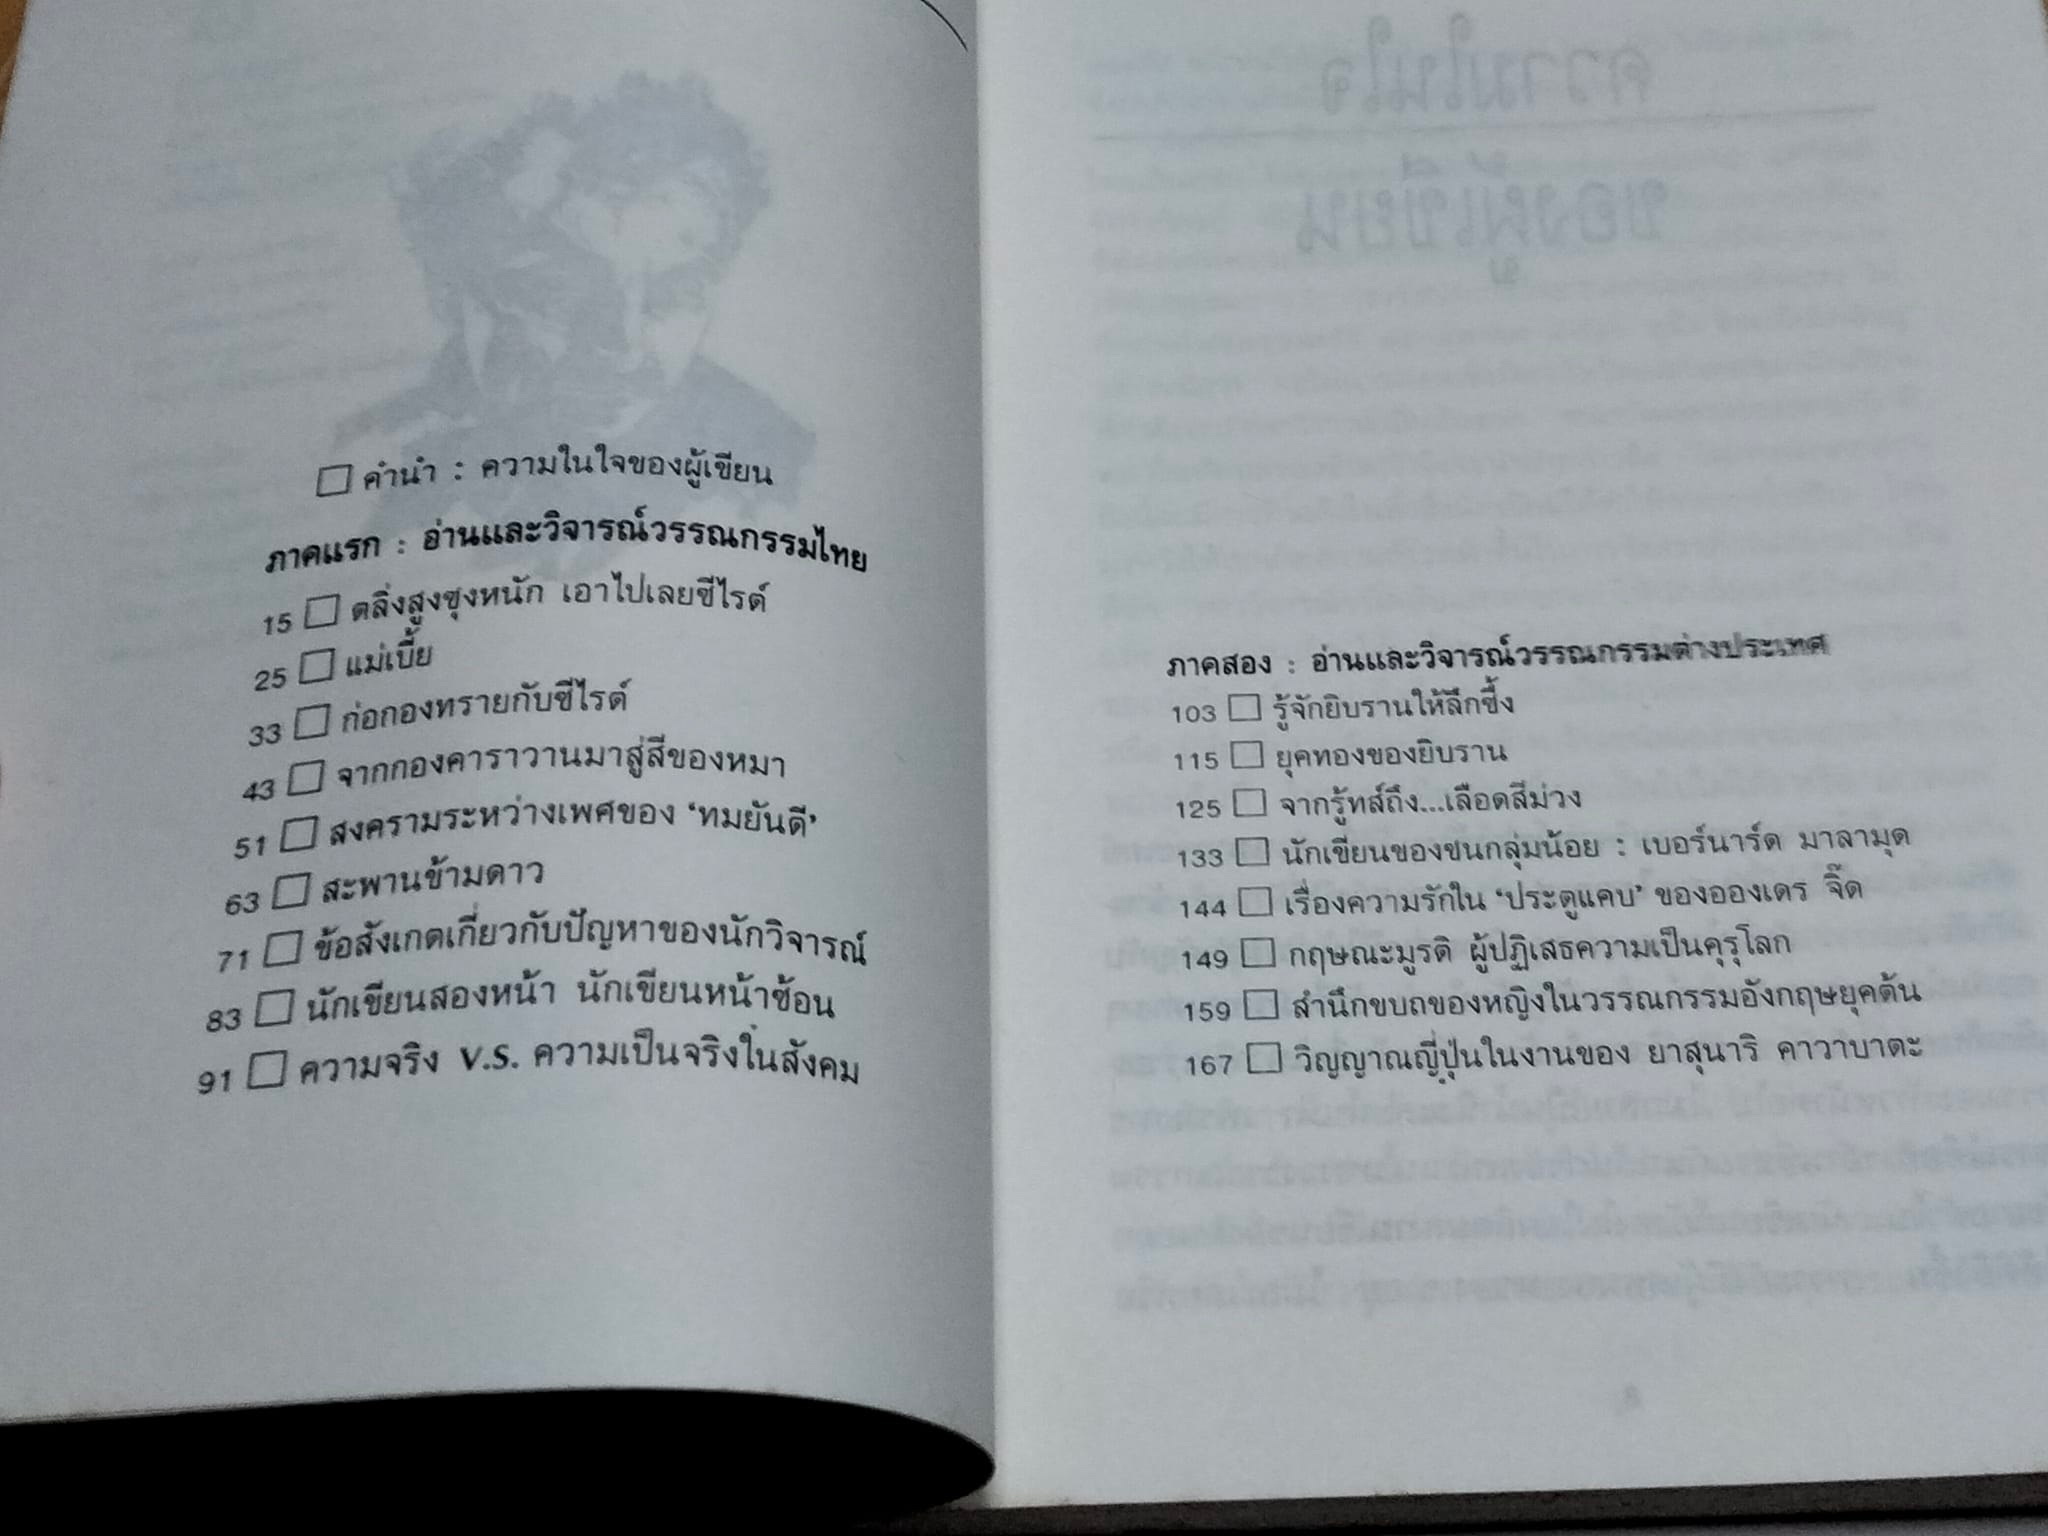 ☐ คำนำ : ความในใจของผู้เขียน
ภาคแรก : อ่านและวิจารณ์วรรณกรรมไทย
15 ☐ ตลิ่งสูงซุงหนัก เอาไปเลยซีไรต์
25 ☐ แม่เบี้ย
33 ☐ ก่อกองทรายกับซีไรต์
43 ☐ จากกองคาราวานมาสู่สีของหมา
51 ☐ สงครามระหว่างเพศของ ‘ทมยันตี’
63 ☐ สะพานข้ามดาว
71 ☐ ข้อสังเกตเกี่ยวกับปัญหาของนักวิจารณ์
83 ☐ นักเขียนสองหน้า นักเขียนหน้าซ้อน
91 ☐ ความจริง V.S. ความเป็นจริงในสังคม
ภาคสอง : อ่านและวิจารณ์วรรณกรรมต่างประเทศ
103 ☐ รู้จักยิบรานให้ลึกซึ้ง
115 ☐ ยุคทองของยิบราน
125 ☐ จากรู้ทส์ถึง...เลือดสีม่วง
133 ☐ นักเขียนของชนกลุ่มน้อย : เบอร์นาร์ด มาลามุด
144 ☐ เรื่องความรักใน ‘ประตูแคบ’ ของอองเดร จิ๊ด
149 ☐ กฤษณะมูรติ ผู้ปฏิเสธความเป็นคุรุโลก
159 ☐ สำนึกขบถของหญิงในวรรณกรรมอังกฤษยุคต้น
167 ☐ วิญญาณญี่ปุ่นในงานของ ยาสุนาริ คาวาบาตะ